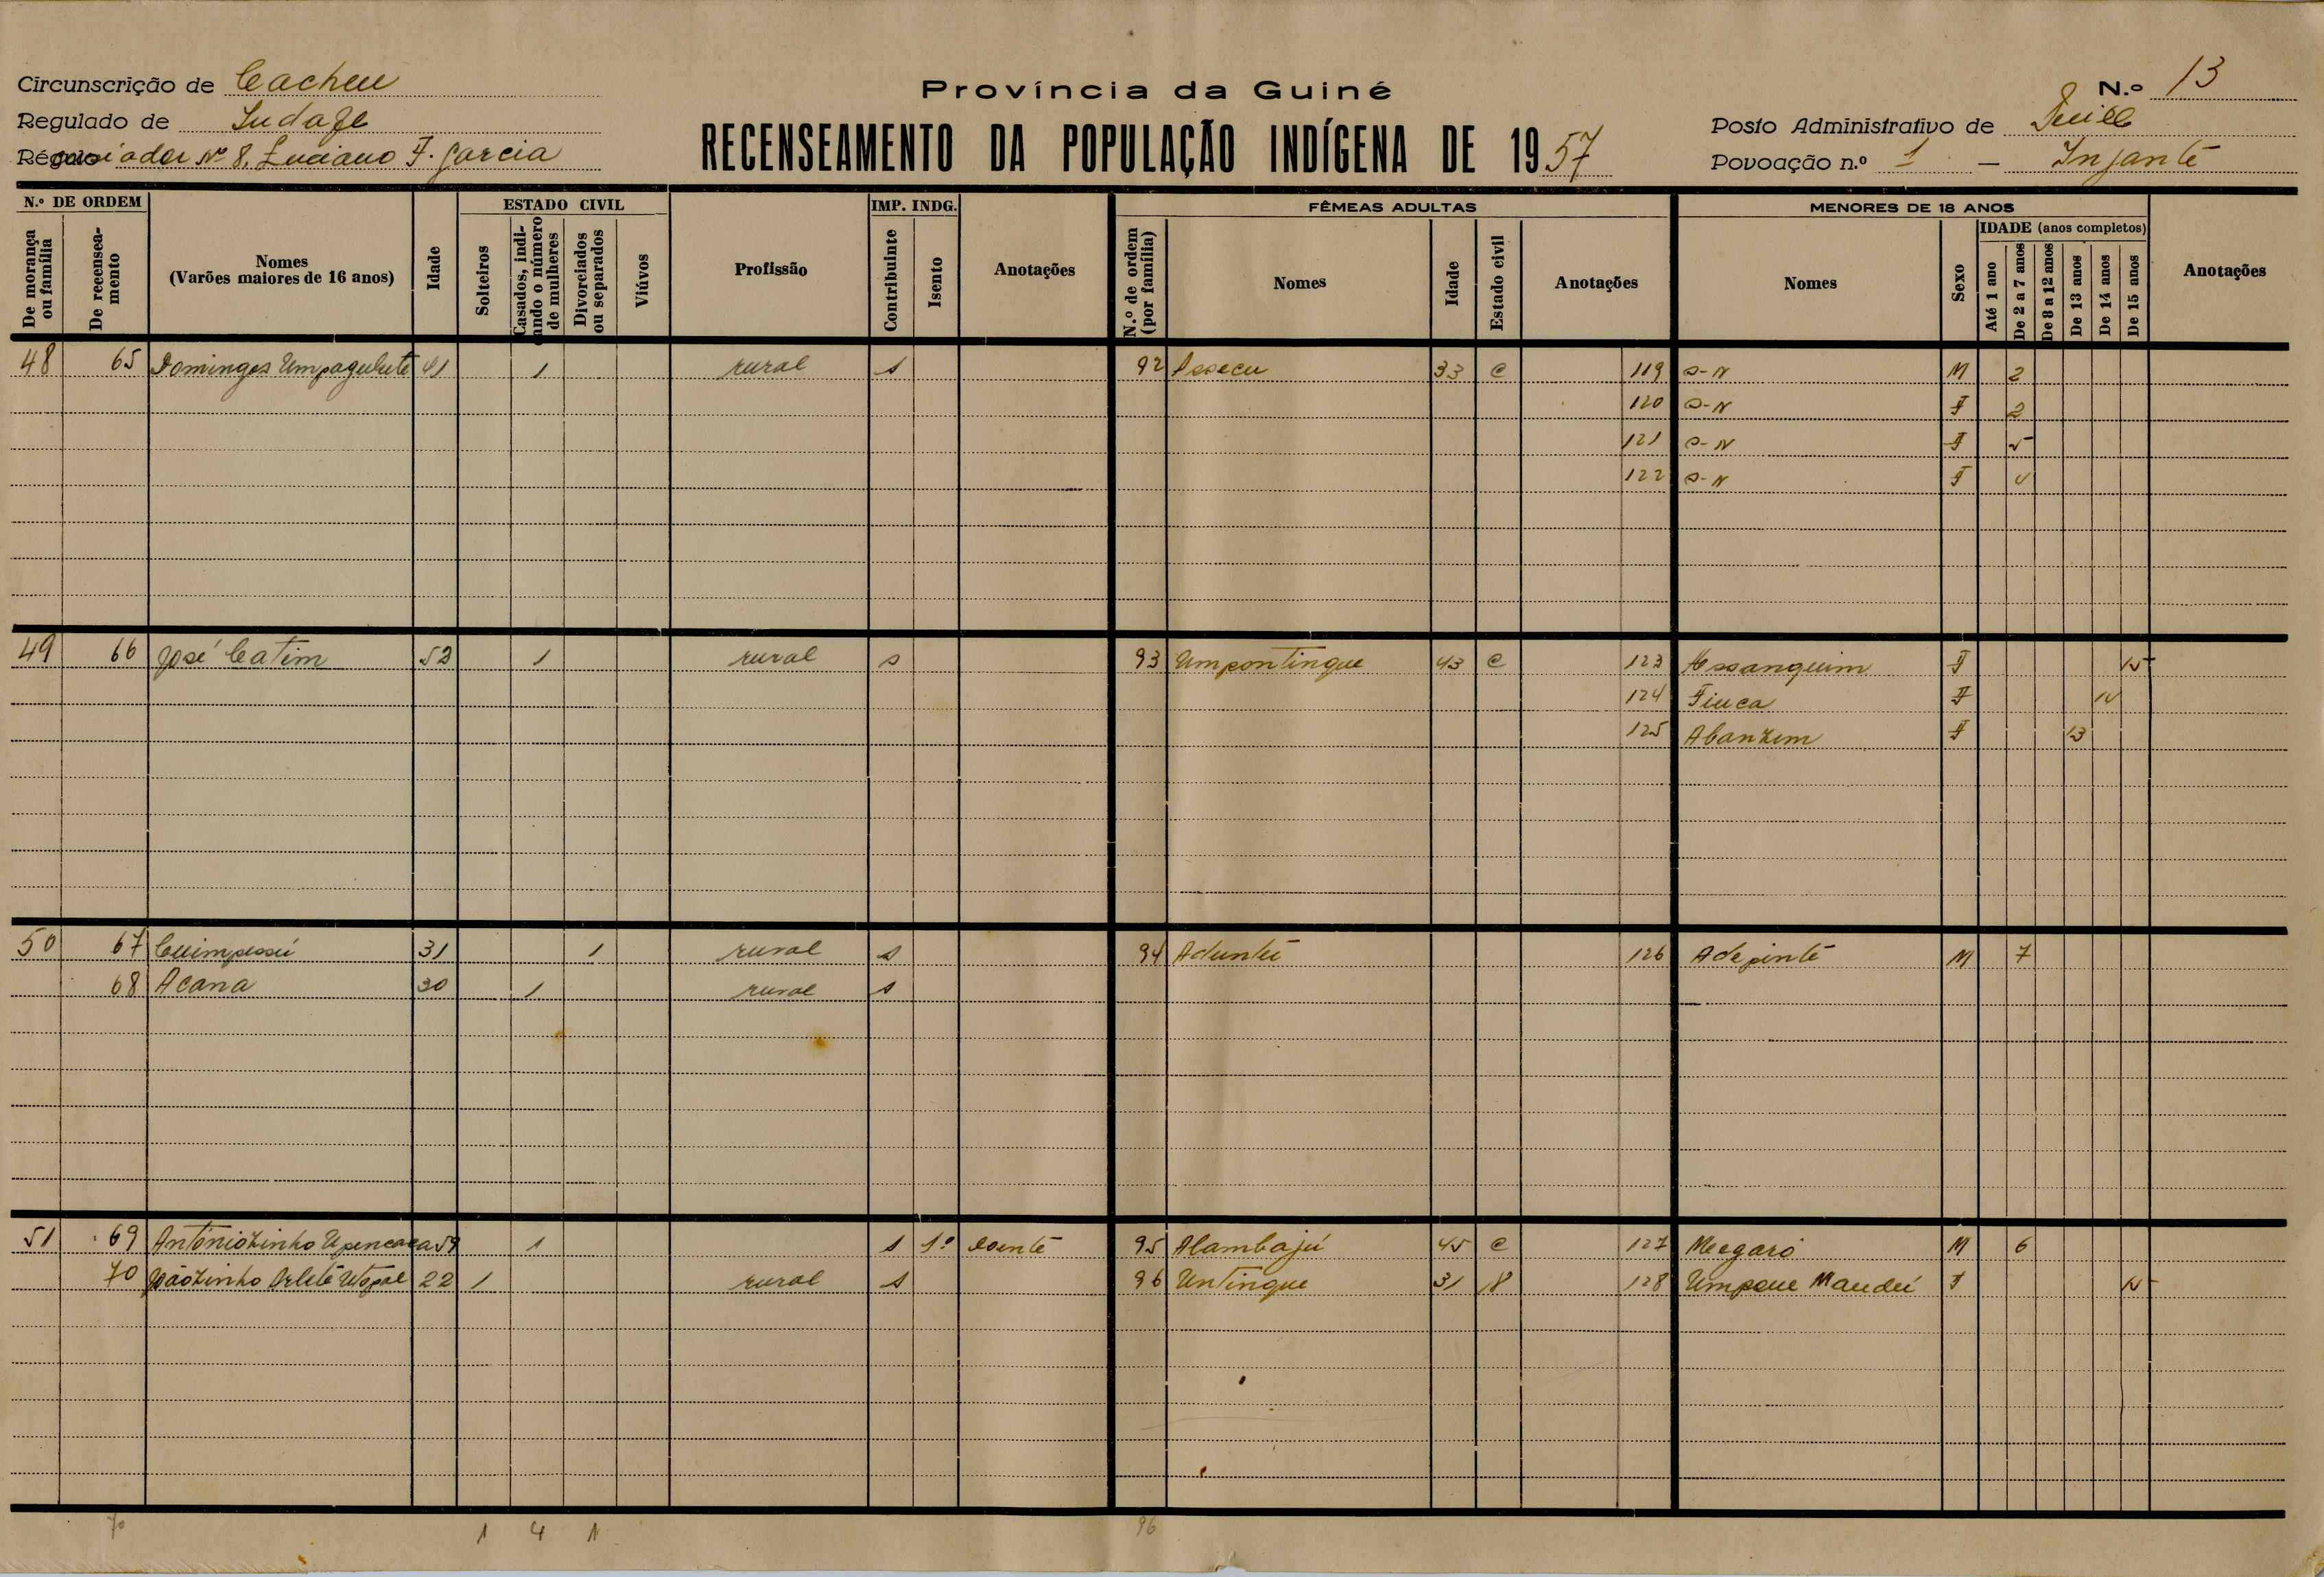 Circunscrição de Cacheu
Província da Guiné
N.º 13
Regulado de
Posto Administrativo de
RECENSEAMENTO DA POPULAÇÃO INDÍGENA DE 1957
Régulo Nº 8. Luciano F. Garcia
Povoação n.º 1 – Injante
N.º DE ORDEM
De morança ou família
De recensea-mento
Nomes
(Varões maiores de 16 anos)
Idade
ESTADO CIVIL
Solteiros
Casados, indi-cando o número de mulheres
Divorciados ou separados
Viúvos
Profissão
IMP. INDG.
Contribuinte
Isento
Anotações
FÊMEAS ADULTAS
N.º de ordem (por família)
Nomes
Idade
Estado civil
Anotações
MENORES DE 18 ANOS
Nomes
Sexo
IDADE (anos completos)
Até 1 ano
De 2 a 7 anos
De 8 a 12 anos
De 13 anos
De 14 anos
De 15 anos
Anotações
48 65 Domingos 41 1 rural s 92 33 C 119 S-N M 2
120 S-N F 2
121 S-N F 5
122 S-N F 4
49 66 José Catim 52 1 rural s 93 Umpontingue 43 C 123 Assanguim F 15
124 Fiuca F 14
125 Abanzim F 13
50 67 31 1 rural s 94 Aduntú 126 Adepinté M 7
68 Acana 30 1 rural s
51 69 Antóniozinho 59 1 s 95 Alambajú 45 C 127 M 6
70 Joãozinho 22 1 rural s 96 Untingue 31 128 F 15
70 1 4 1 96